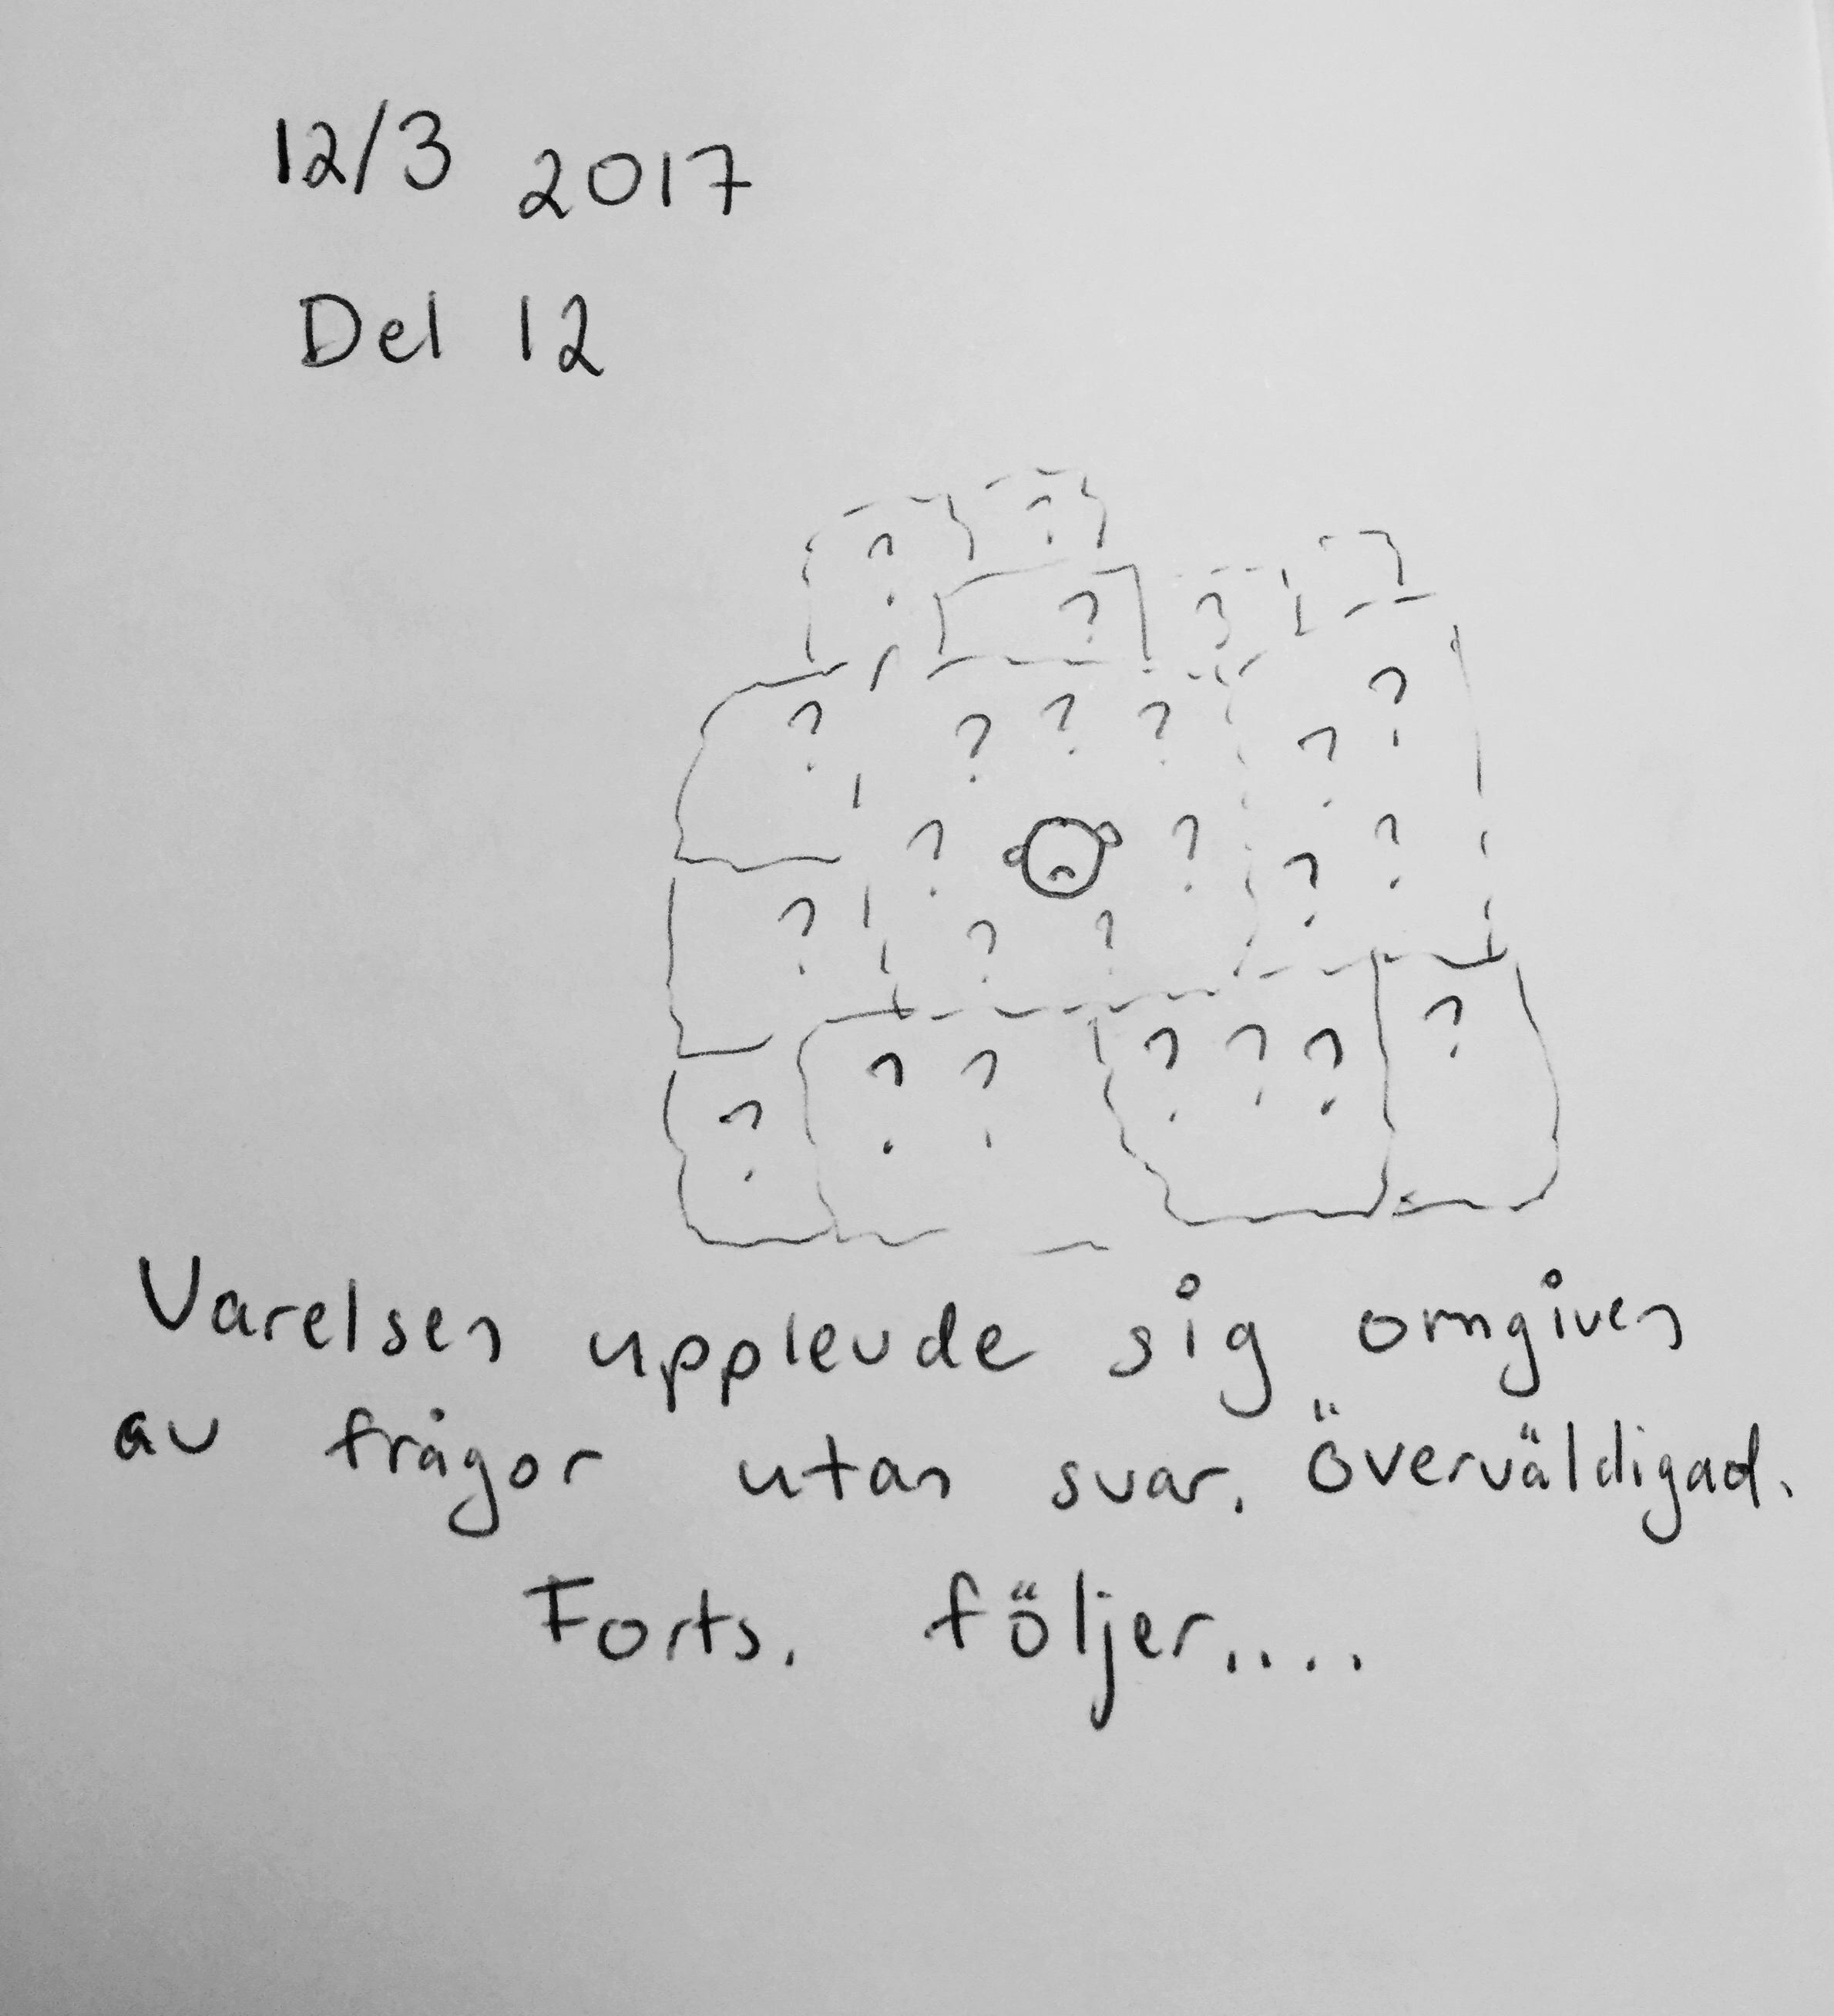 12/3 2017
Del 12
? ?
? ?
? ? ? ? ? ?
? ? ? ?
? ? ?
? ? ? ? ? ?
?
Varelsen upplevde sig omgiven
av frågor utan svar. Överväldigad.
Forts. följer....